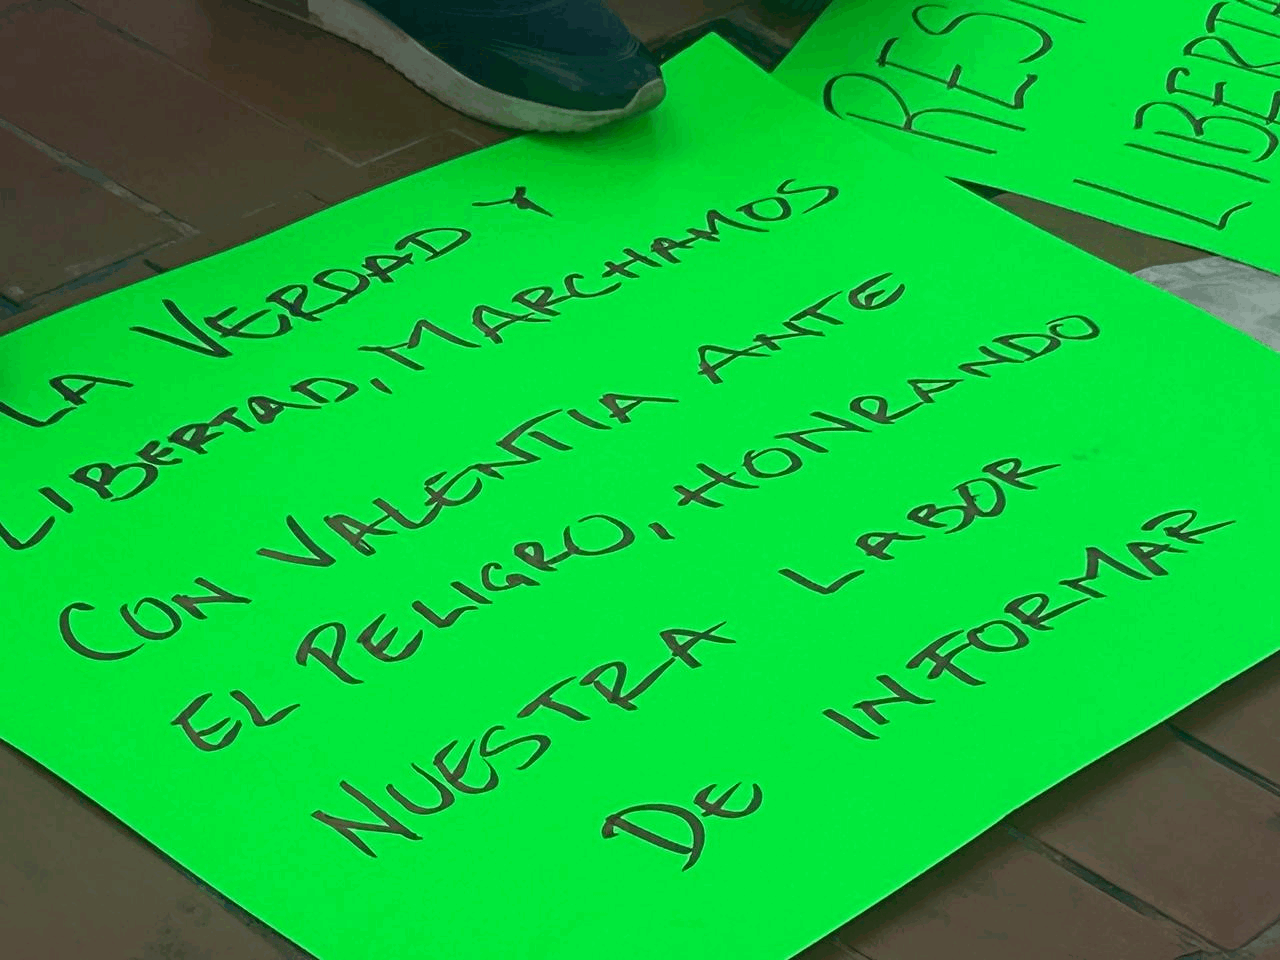 LA VERDAD Y
LIBERTAD, MARCHAMOS
CON VALENTIA ANTE
EL PELIGRO, HONRANDO
NUESTRA LABOR
DE INFORMAR